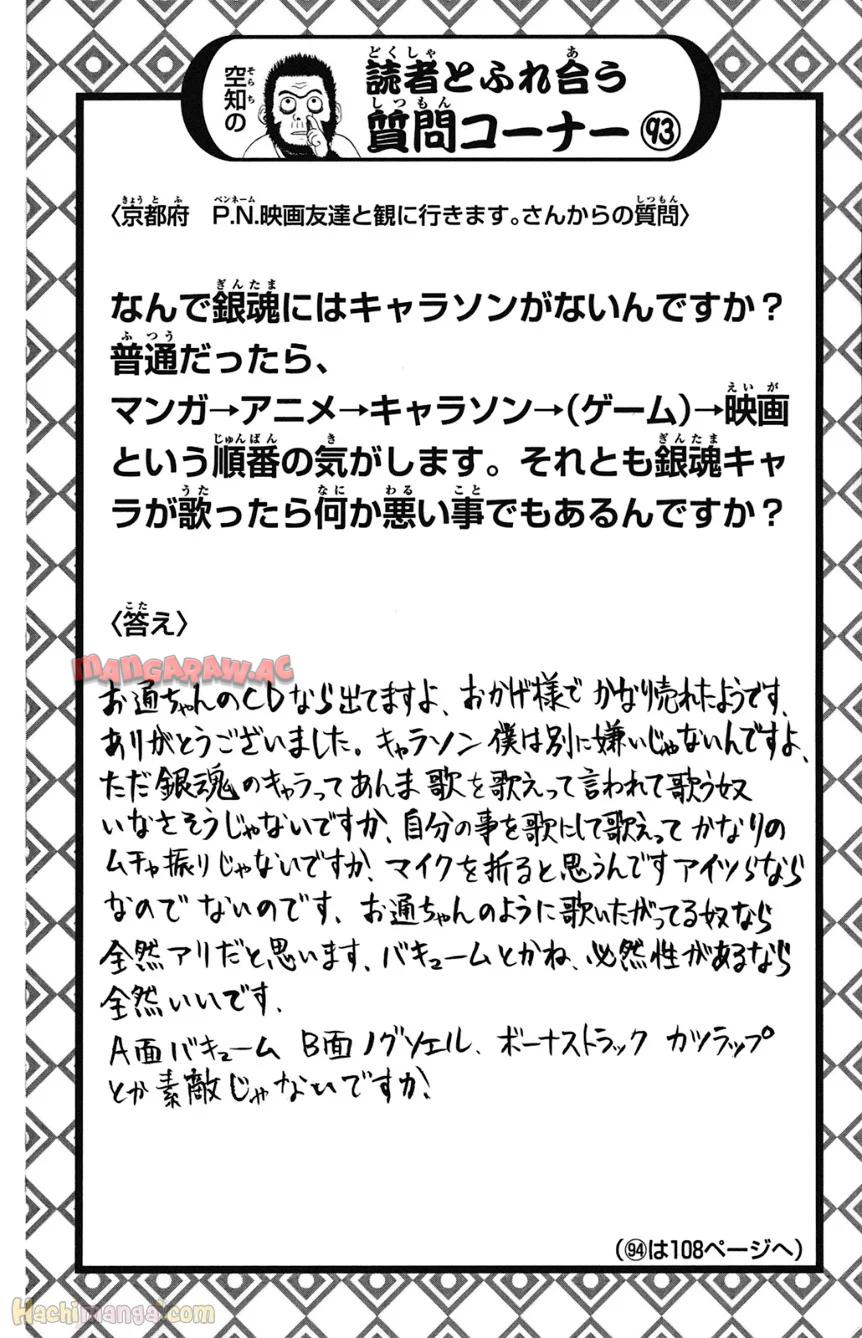 空知の
読者とふれ合う
質問コーナー㉝
〈京都府　P.N.映画友達と観に行きます。さんからの質問〉
なんで銀魂にはキャラソンがないんですか？
普通だったら、
マンガ→アニメ→キャラソン→(ゲーム)→映画
という順番の気がします。それとも銀魂キャ
ラが歌ったら何か悪い事でもあるんですか？
〈答え〉
MANGARAW.AC
お通ちゃんのCDなら出てますよ、おかげ様でかなり売れたようです、
ありがとうございました。キャラソン僕は別に嫌いじゃないんですよ、
ただ銀魂のキャラってあんま歌を歌えって言われて歌う奴
いなさそうじゃないですか、自分の事を歌にして歌えってかなりの
ムチャ振りじゃないですか、マイクを折ると思うんですアイツらなら
なのでないのです、お通ちゃんのように歌いたがってる奴なら
全然アリだと思います、バキュームとかね、必然性があるなら
全然いいです、
A面バキューム B面ノグソエル、ボーナストラック カツラップ
とか素敵じゃないですか、
(94は108ページへ)
Hachimanga.com